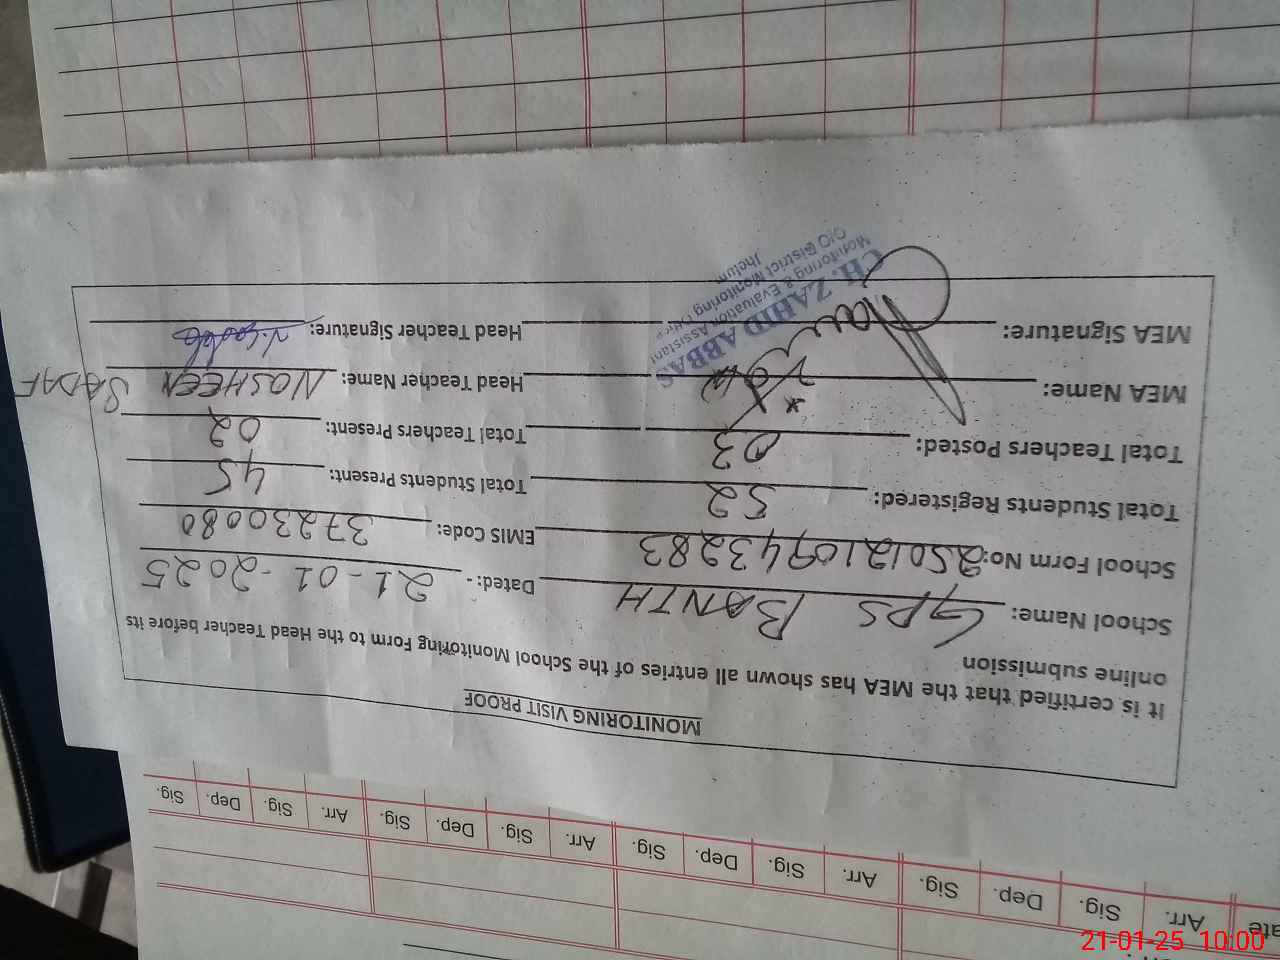 MONITORING VISIT PROOF
It is certified that the MEA has shown all entries of the School Monitoring Form to the Head Teacher before its
online submission
School Name: GPS BANTH Dated: - 21-01-2025
School Form No: 250121094 3283 EMIS Code: 37230080
Total Students Registered: 52 Total Students Present: 45
Total Teachers Posted: 03 Total Teachers Present: 02
MEA Name: Head Teacher Name: NOSHEEN SADAF
MEA Signature: Head Teacher Signature:
CH. ZAHID ABBAS
Monitoring & Evaluation Assistant
O/O District Monitoring Officer
Jhelum
Sig. Dep. Sig. Arr. Sig. Dep. Sig. Arr. Sig. Dep. Sig. Arr. Sig. Dep. Sig. Arr.
21-01-25 10:00